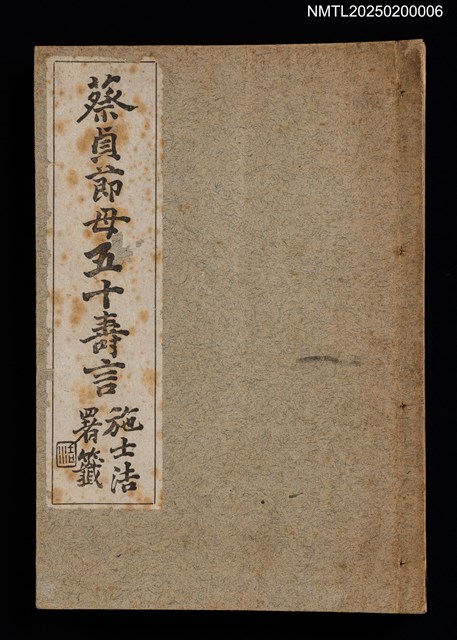 NMTL20250200006
蔡貞節母五十壽言
施士洁
署籤